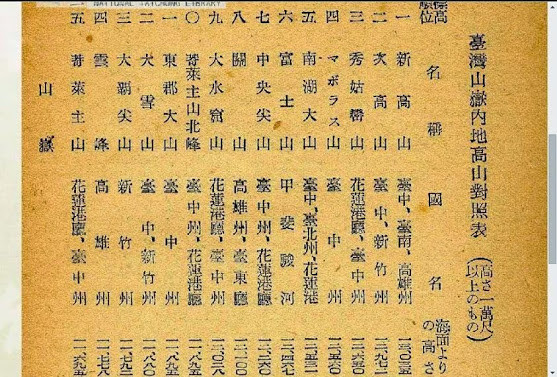 臺灣山嶽內地高山對照表(高さ一萬尺以上のもの)
標高順位 名稱 國名 海面よりの高さ
一 新高山 臺中、臺南、高雄州 一三〇三五
二 次高山 臺中、新竹州 一二九七二
三 秀姑巒山 花蓮港廳、臺中州
四 マボラス山 臺中州
五 南湖大山 臺中、臺北州、花蓮港
六 富士山 甲斐駿河 一二四六七
七 中央尖山 臺中州、花蓮港廳
八 關山 高雄州、臺東廳 一二一〇〇
九 大水窟山 花蓮港廳、臺中州
〇 奇萊主山北峰 臺中州、花蓮港廳
一 東郡大山 臺中州
二 大雪山 臺中、新竹州
三 大霸尖山 新竹州
四 雲峰 高雄州
五 奇萊主山 花蓮港廳、臺中州
山嶽